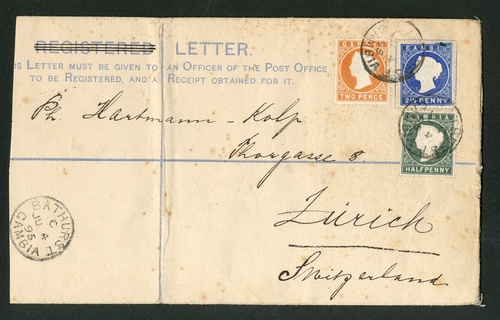 REGISTERED LETTER.
IS LETTER MUST BE GIVEN TO AN OFFICER OF THE POST OFFICE
TO BE REGISTERED, AND A RECEIPT OBTAINED FOR IT.
GAMBIA
TWO PENCE
GAMBIA
2½ PENNY
GAMBIA
HALFPENNY
Ph. Hartmann-Kolp
Thorgasse 8.
Zürich
Switzerland
BATHURST
C
JU 4
95
GAMBIA